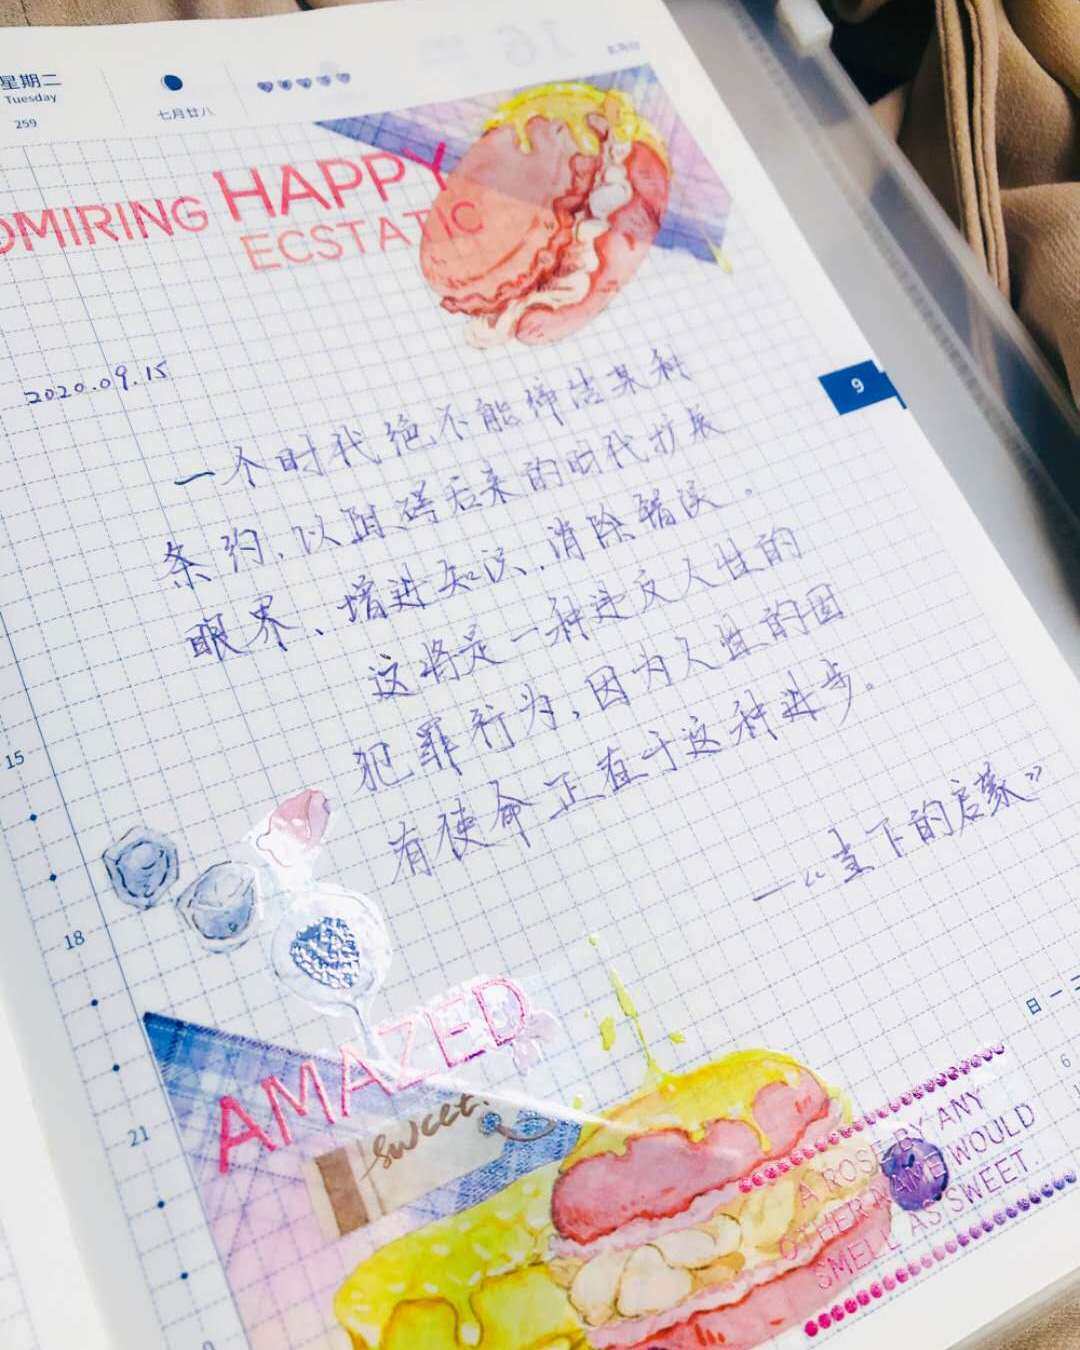 星期二
Tuesday
259
七月廿八
16
DMIRING HAPPY
ECSTATIC
2020.09.15
9
一个时代绝不能缔结某种
条约,以阻碍后来的时代扩展
眼界、增进知识、消除错误。
这将是一种违反人性的
犯罪行为,因为人性的固
有使命正在于这种进步。
——《圭下的启蒙》
15
18
21
日一二
6
AMAZED
sweet.
A ROSE BY ANY
OTHER NAME WOULD
SMELL AS SWEET.